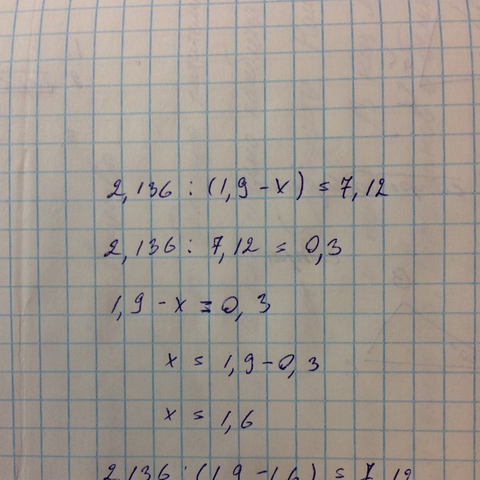 2,136 : (1,9 - x) = 7,12
2,136 : 7,12 = 0,3
1,9 - x = 0,3
x = 1,9 - 0,3
x = 1,6
2,136 : (1,9 - 1,6) = 7,12